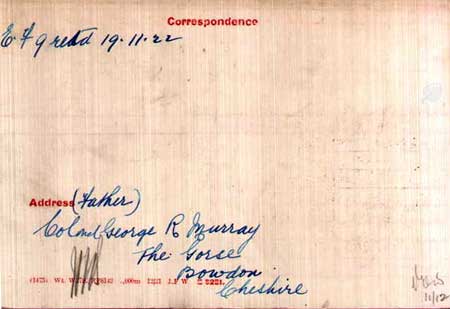 Correspondence
E F 9 retd 19.11.22
Address (Father)
Colonel George R Murray
The Gorse
Bowdon
Cheshire
11/12